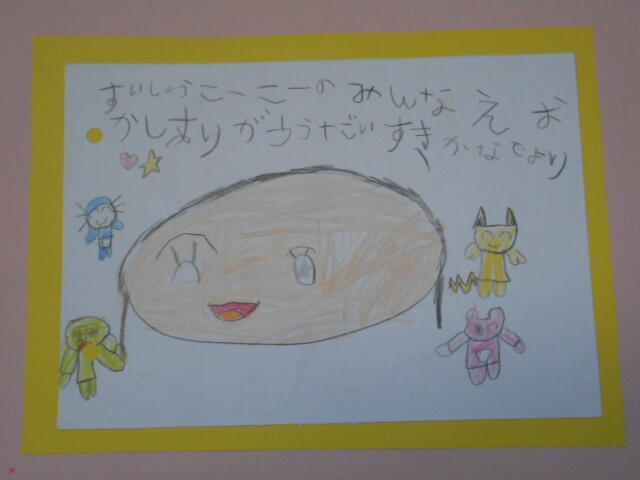 すいしょうこーこーのみんなえ お
かしすりがうすごいすき かなでより